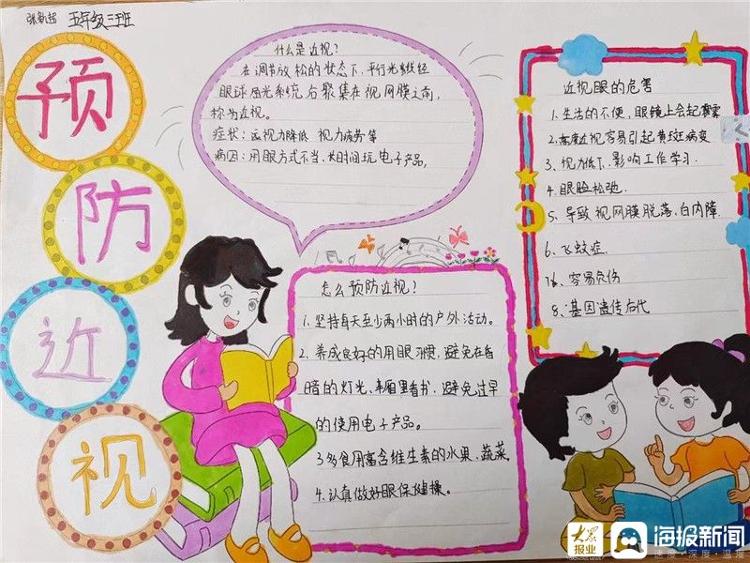 五年级三班
预
防
近
视
什么是近视?
在调节放松的状态下,平行光线经
眼球屈光系统后聚集在视网膜之前,
称为近视。
症状:远视力降低 视力疲劳等
病因:用眼方式不当、长时间玩电子产品,
怎么预防近视?
1、坚持每天至少两小时的户外活动。
2、养成良好的用眼习惯,避免在昏
暗的灯光、被窝里看书,避免过早
的使用电子产品。
3多食用富含维生素的水果、蔬菜
4、认真做好眼保健操。
近视眼的危害
1、生活的不便,眼镜上会起雾
2、高度近视容易引起黄斑病变
3、视力低下、影响工作学习
4、眼睑松弛.
5、导致视网膜脱落、白内障
6、飞蚊症.
7、容易负伤
8、基因遗传后代
大众报业
海报新闻
速度·深度·温度